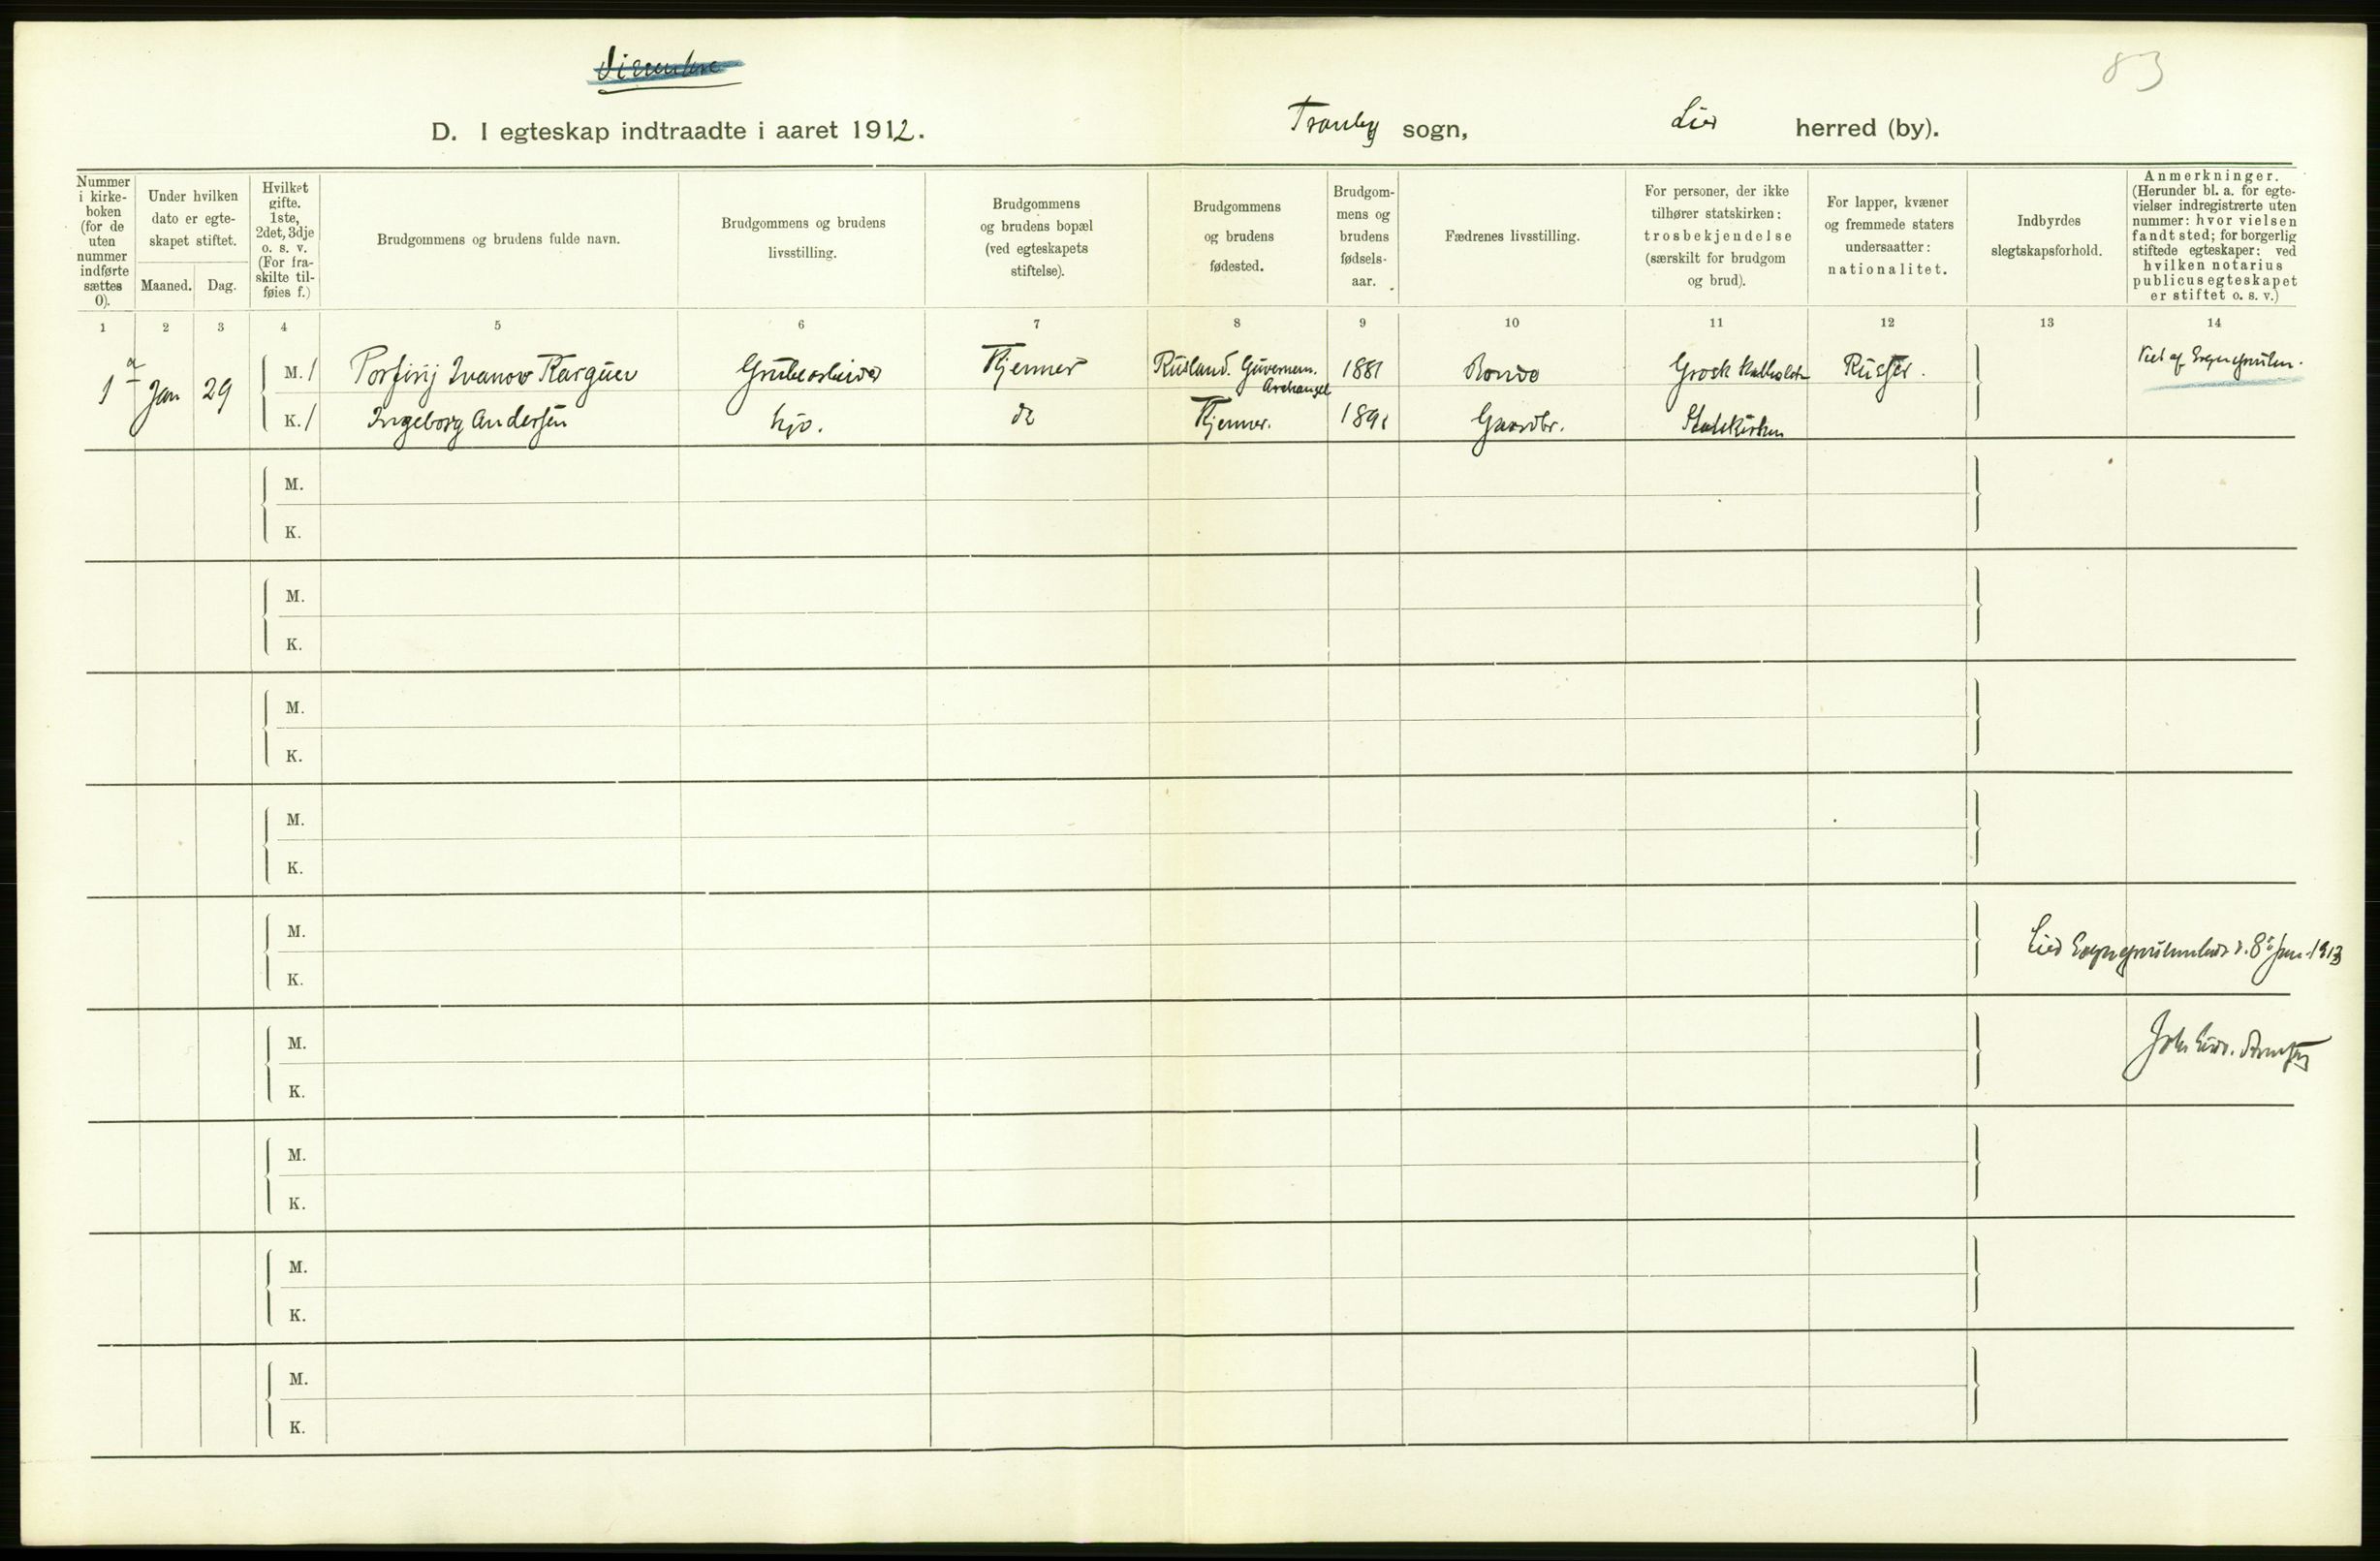 83
D. I egteskap indtraadte i aaret 1912.
Tranby sogn, Lier herred (by).
Nummer i kirke-boken (for de uten nummer indførte sættes 0).
Under hvilken dato er egte-skapet stiftet.
Maaned. Dag.
Hvilket gifte. 1ste, 2det, 3dje o. s. v. (For fra-skilte til-føies f.)
Brudgommens og brudens fulde navn.
Brudgommens og brudens livsstilling.
Brudgommens og brudens bopæl (ved egteskapets stiftelse).
Brudgommens og brudens fødested.
Brudgom-mens og brudens fødsels-aar.
Fædrenes livsstilling.
For personer, der ikke tilhører statskirken: trosbekjendelse (særskilt for brudgom og brud).
For lapper, kvæner og fremmede staters undersaatter: nationalitet.
Indbyrdes slegtskapsforhold.
Anmerkninger. (Herunder bl. a. for egte-vielser indregistrerte uten nummer: hvor vielsen fandt sted; for borgerlig stiftede egteskaper: ved hvilken notarius publicus egteskapet er stiftet o. s. v.)
1 2 3 4 5 6 7 8 9 10 11 12 13 14
1 a Jan 29
M. 1 Porfirij Ivanov Karguev Grubearbeider Kjenner Rusland. Guvernem. Archangel 1881 Bonde Græsk Katholsk Russer. Viet af Sognepræsten.
K. 1 Ingeborg Andersen hjv. do Kjenner. 1891 Gaardbr. Statskirken
M.
K.
M.
K.
M.
K.
M.
K.
M.
K.
Lier Sognepræstembede d. 8de Jan. 1913
M.
K.
M.
K.
M.
K.
M.
K.